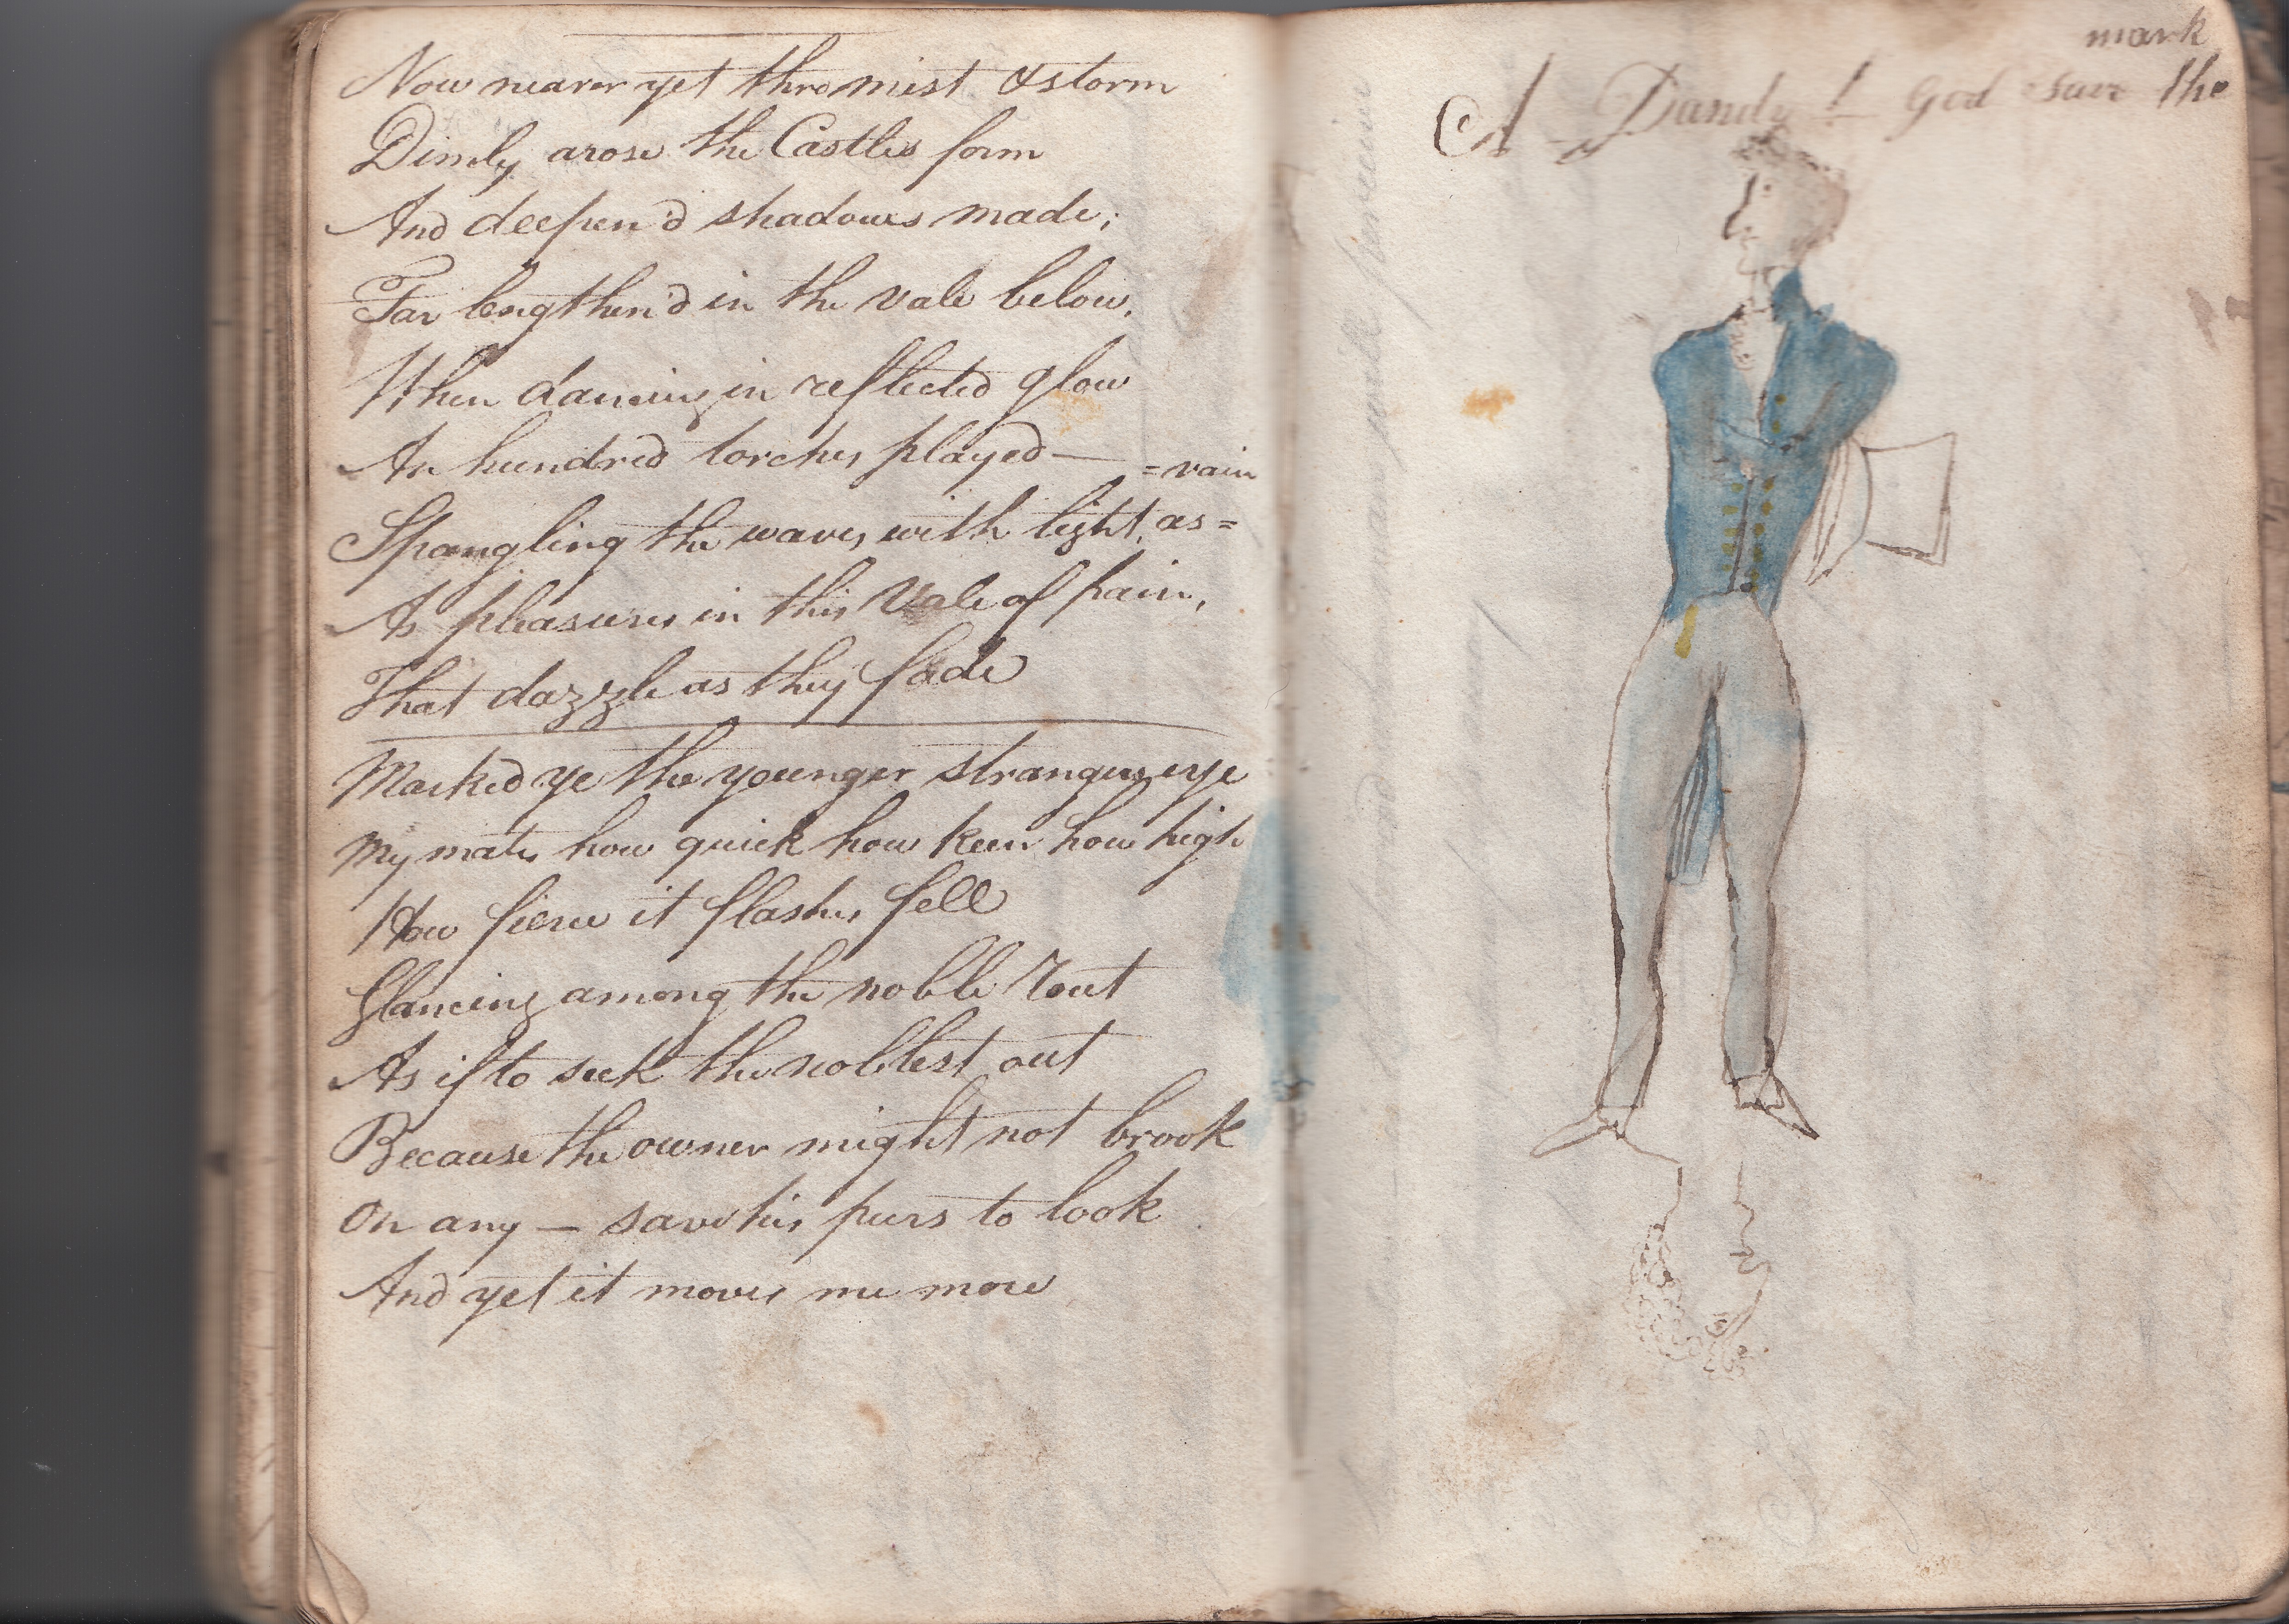 Now nearer yet thro mist & storm
Dimly arose the Castles form
And deepen'd shadows made;
Far lengthen'd in the vale below,
When dancing in reflected glow
An hundred torches played—
Spangling the waves with light, as=
=vain
As pleasures in this Vale of pain,
That dazzle as they fade
Marked ye the younger strangers eye
My mates how quick how keen how high
How fierce it flashes fell
Glancing among the noble rout
As if to seek the noblest out
Because the owner might not brook
On any — save his peers to look
And yet it moves me more
mark
A Dandy! God save the